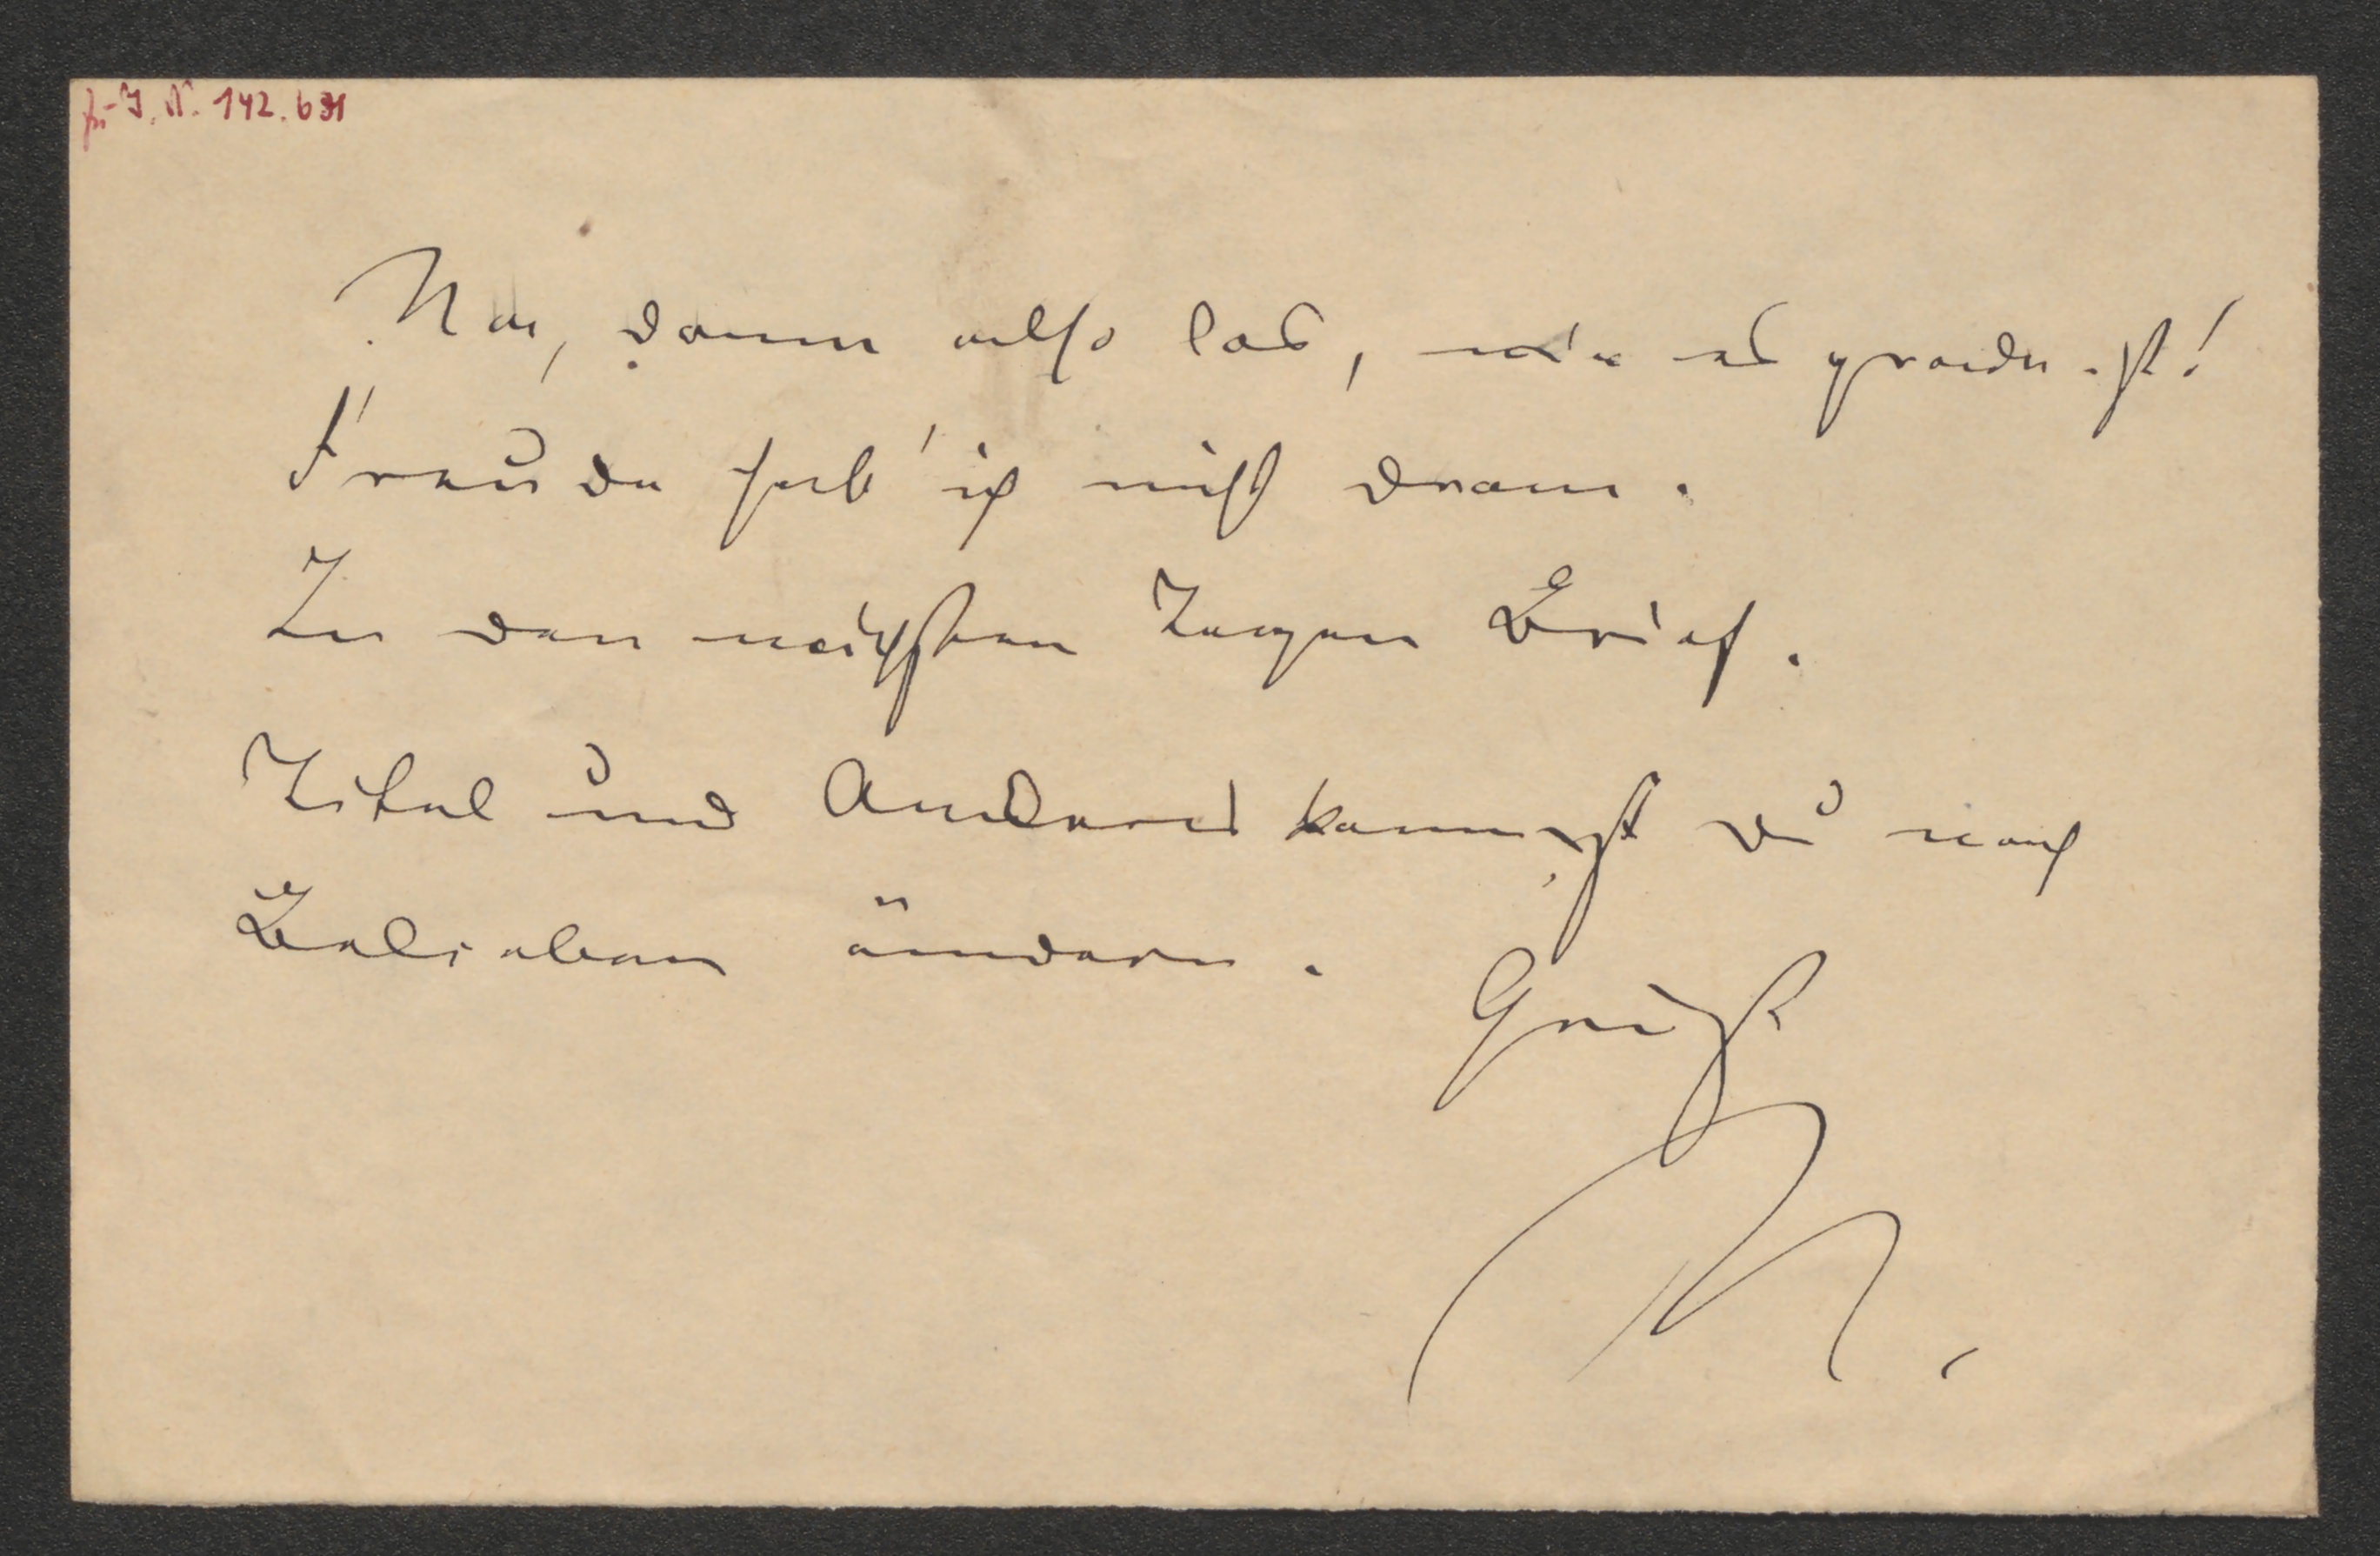 zu I. N. 142.631
Na, dann also los, wie es grade ist!
Freude hab' ich nicht dran.
In den nächsten Tagen Brief.
Titel und Anderes kannst du nach
Belieben ändern.
Gruß
K.